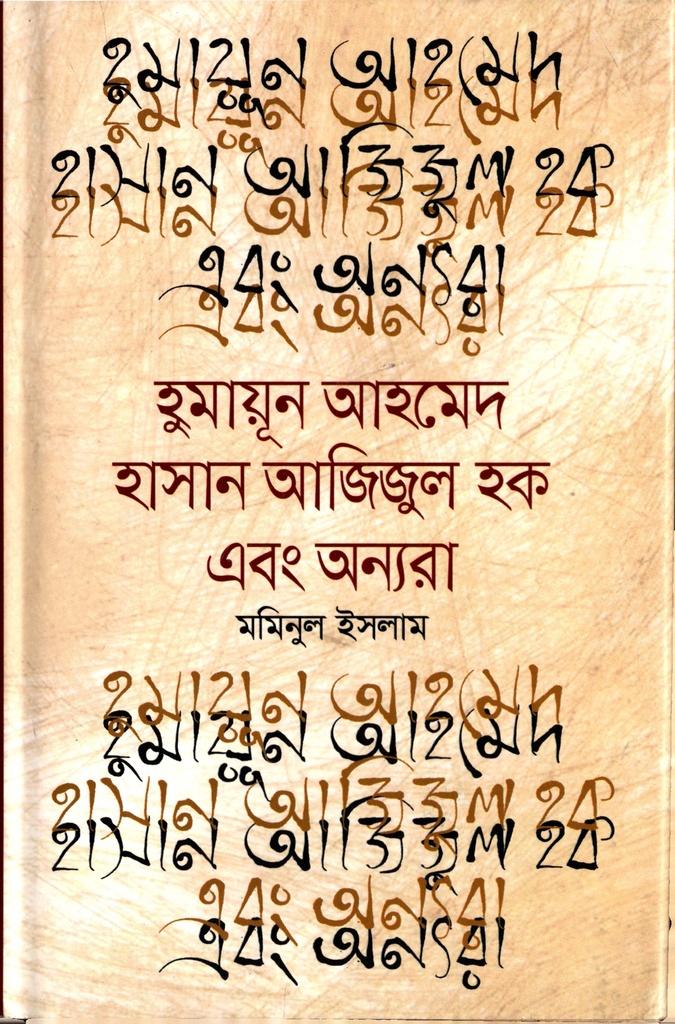 হুমায়ূন আহমেদ
হুমায়ূন আহমেদ
হাসান আজিজুল হক
হাসান আজিজুল হক
এবং অন্যরা
এবং অন্যরা
হুমায়ূন আহমেদ
হাসান আজিজুল হক
এবং অন্যরা
মমিনুল ইসলাম
হুমায়ূন আহমেদ
হুমায়ূন আহমেদ
হাসান আজিজুল হক
হাসান আজিজুল হক
এবং অন্যরা
এবং অন্যরা